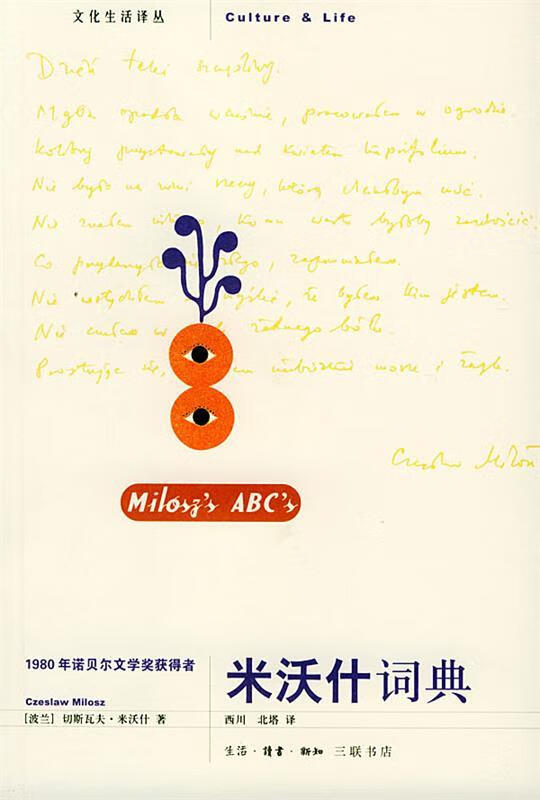 文化生活译丛
Culture & Life
Dzień taki szczęśliwy.
Mgła opadła wcześnie, pracowałem w ogrodzie.
Kolibry przystawały nad kwiatem kaprifolium.
Nie było na ziemi rzeczy, którą chciałbym mieć.
Nie znałem nikogo, komu warto byłoby zazdrościć.
Co złego, zapomniałem.
Nie wstydziłem myśleć, że byłem kim jestem.
Nie czułem w żadnego bólu.
Prostując się, niebieskie morze i żagle.
Czesław Miłosz
Milosz's ABC's
1980年诺贝尔文学奖获得者
米沃什词典
Czeslaw Milosz
[波兰] 切斯瓦夫·米沃什 著
西川 北塔 译
生活·读书·新知 三联书店